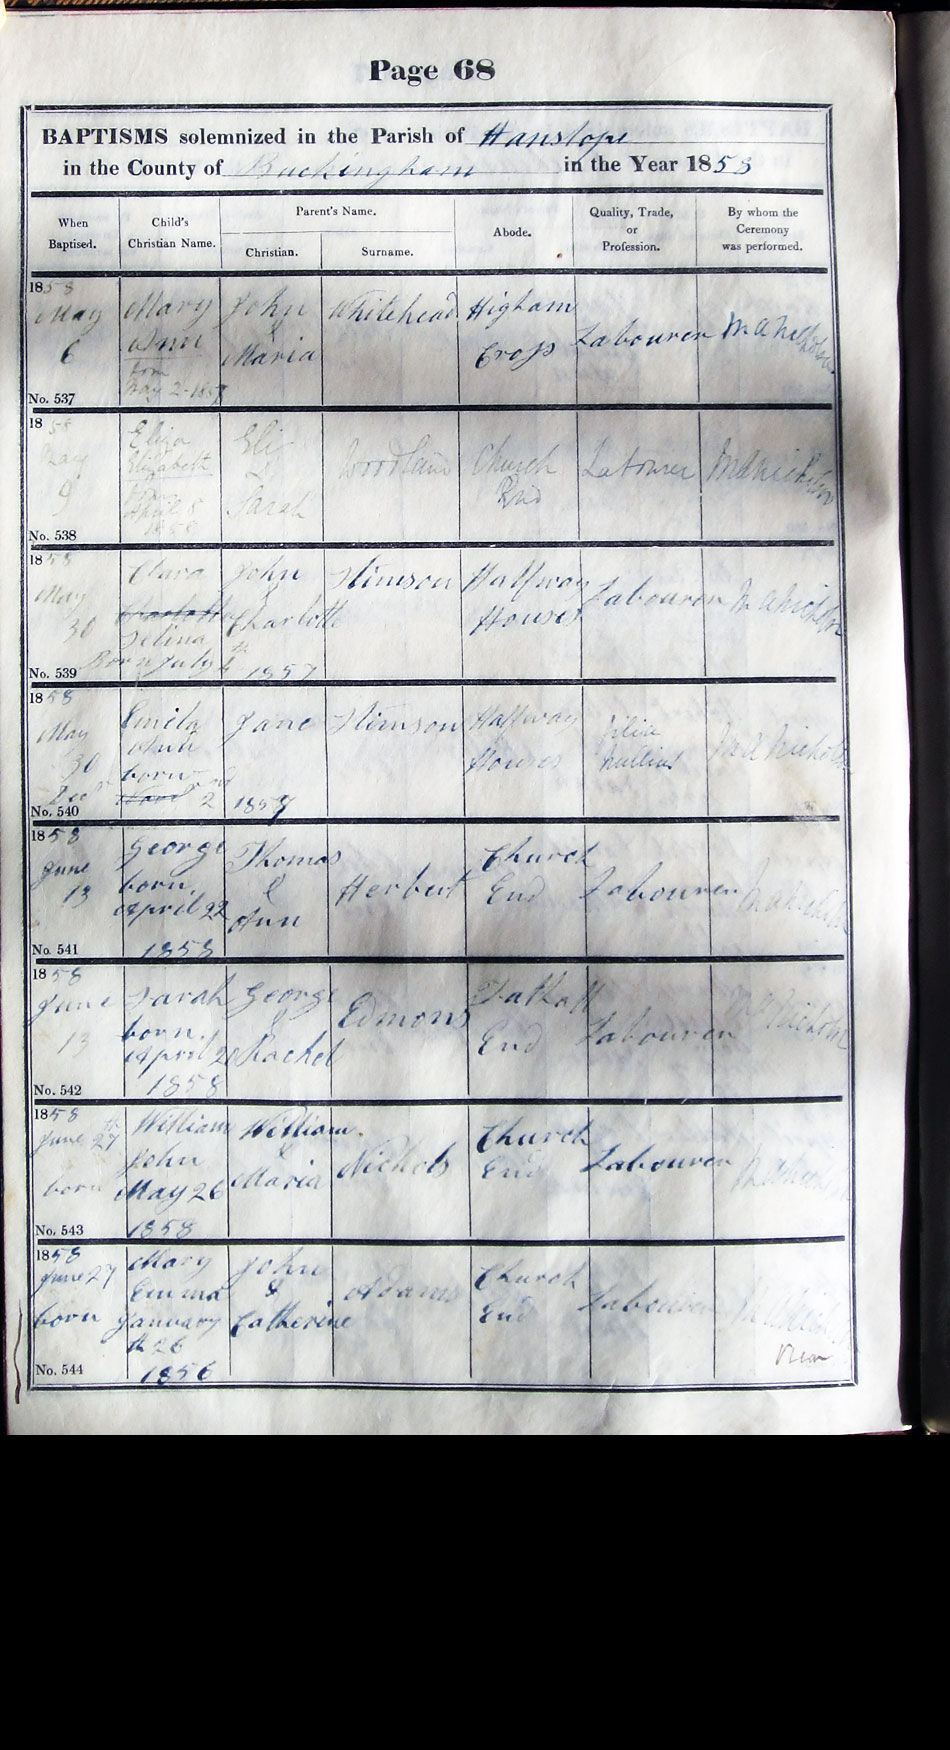 Page 68
BAPTISMS solemnized in the Parish of Hanslope
in the County of Buckingham in the Year 1858
When Baptised. Child's Christian Name. Parent's Name. Abode. Quality, Trade, or Profession. By whom the Ceremony was performed.
Christian. Surname.
1858
May Mary John Whitehead Higham
6 Ann & Maria Cross Labourer
born
May 2-1858
No. 537
1858
May Eliza Eli Church Labourer
9 Elizabeth & Sarah End
born
April 5
1858
No. 538
1858
May Clara John Stimson Halfway Labourer
30 Charlotte Charlotte Houses
Selina
Born July 4th 1857
No. 539
1858
May Emila Jane Stimson Halfway Filia
30 Ann Houses Nullius
born
Decr 2nd 1857
No. 540
1858
June George Thomas Church
13 born & Herbert End Labourer
April 22 Ann
1858
No. 541
1858
June Sarah George Edmons Tathall
13 born & End Labourer
April 20 Rachel
1858
No. 542
1858
June 27th William William Church
John & Nichols End Labourer
born May 26 Maria
1858
No. 543
1858
June 27 Mary John Church
Emma & Adams End Labourer
born January Catherine
th 26
1856
No. 544